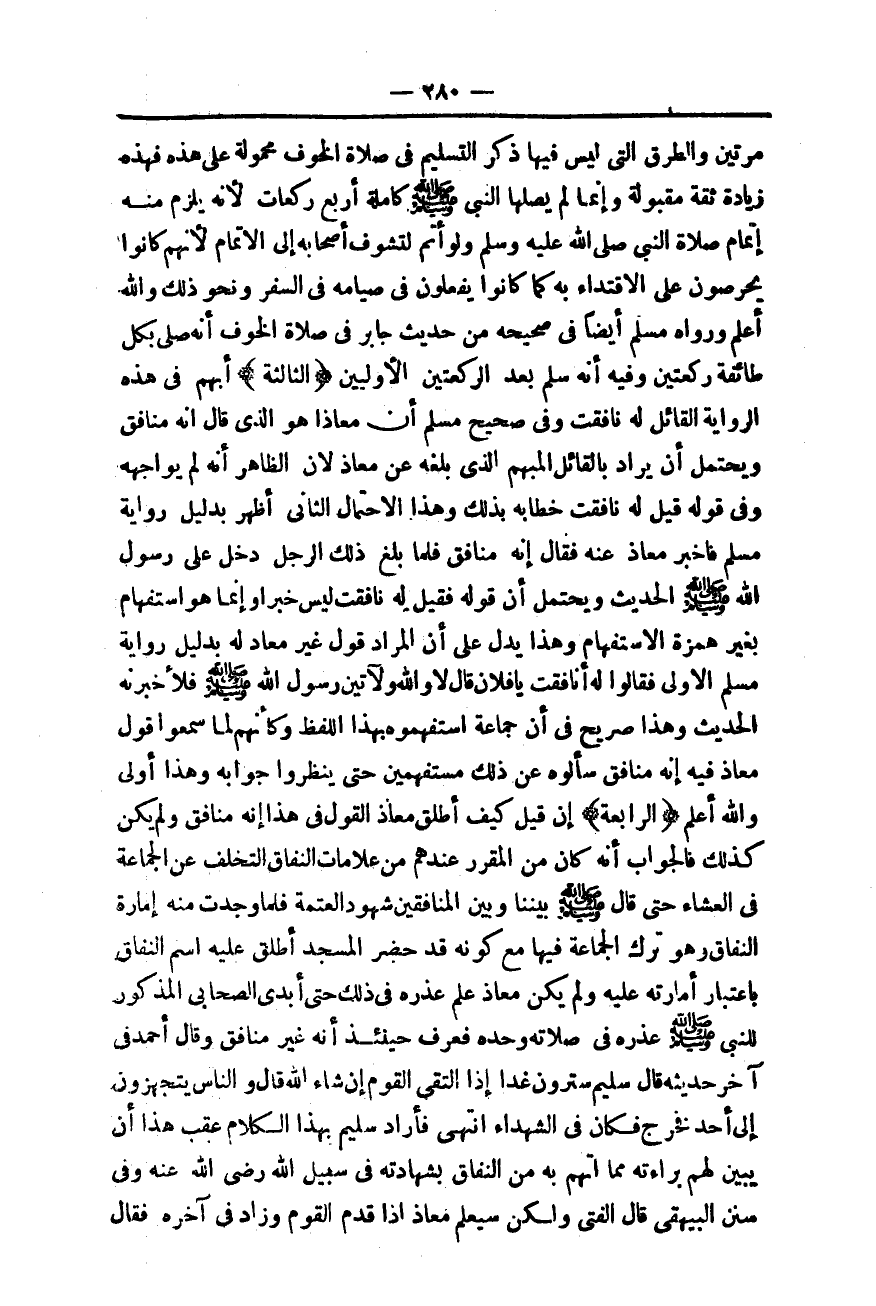 — ٢٨٠ —
مرتين والطرق التى ليس فيها ذكر التسليم فى صلاة الخوف محمولة على هذه فهذه
زيادة ثقة مقبولة وإنما لم يصلها النبى ﷺ كاملة أربع ركعات لأنه يلزم منه
إتمام صلاة النبى صلى الله عليه وسلم ولو أتم لتشوف أصحابه إلى الاتمام لأنهم كانوا
يحرصون على الاقتداء به كما كانوا يفعلون فى صيامه فى السفر ونحو ذلك والله
أعلم ورواه مسلم أيضاً فى صحيحه من حديث جابر فى صلاة الخوف أنه صلى بكل
طائفة ركعتين وفيه أنه سلم بعد الركعتين الأوليين ﴿الثالثة﴾ أبهم فى هذه
الرواية القائل له نافقت وفى صحيح مسلم أن معاذا هو الذى قال انه منافق
ويحتمل أن يراد بالقائل المبهم الذى بلغه عن معاذ لان الظاهر أنه لم يواجهه
وفى قوله قيل له نافقت خطابه بذلك وهذا الاحتمال الثانى أظهر بدليل رواية
مسلم فاخبر معاذ عنه فقال إنه منافق فلما بلغ ذلك الرجل دخل على رسول
الله ﷺ الحديث ويحتمل أن قوله فقيل له نافقت ليس خبرا وإنما هو استفهام
بغير همزة الاستفهام وهذا يدل على أن المراد قول غير معاد له بدليل رواية
مسلم الاولى فقالوا له أنافقت يافلان قال لا والله ولآتين رسول الله ﷺ فلأخبرنه
الحديث وهذا صريح فى أن جماعة استفهموه بهذا اللفظ وكأنهم لما سمعوا قول
معاذ فيه إنه منافق سألوه عن ذلك مستفهمين حتى ينظروا جوابه وهذا أولى
والله أعلم ﴿الرابعة﴾ إن قيل كيف أطلق معاذ القول فى هذا إنه منافق ولم يكن
كذلك فالجواب أنه كان من المقرر عندهم من علامات النفاق التخلف عن الجماعة
فى العشاء حتى قال ﷺ بيننا وبين المنافقين شهود العتمة فلما وجدت منه إمارة
النفاق رهو ترك الجماعة فيها مع كونه قد حضر المسجد أطلق عليه اسم النفاق
باعتبار أمارته عليه ولم يكن معاذ علم عذره فى ذلك حتى أبدى الصحابى المذكور
للنبى ﷺ عذره فى صلاته وحده فعرف حينئذ أنه غير منافق وقال أحمد فى
آخر حديثه قال سليم سترون غدا إذا التقى القوم إن شاء الله قال والناس يتجهزون
إلى أحد فخرج فكان فى الشهداء انتهى فأراد سليم بهذا الكلام عقب هذا أن
يبين لهم براءته مما اتهم به من النفاق بشهادته فى سبيل الله رضى الله عنه وفى
سنن البيهقى قال الفتى ولكن سيعلم معاذ اذا قدم القوم وزاد فى آخره فقال